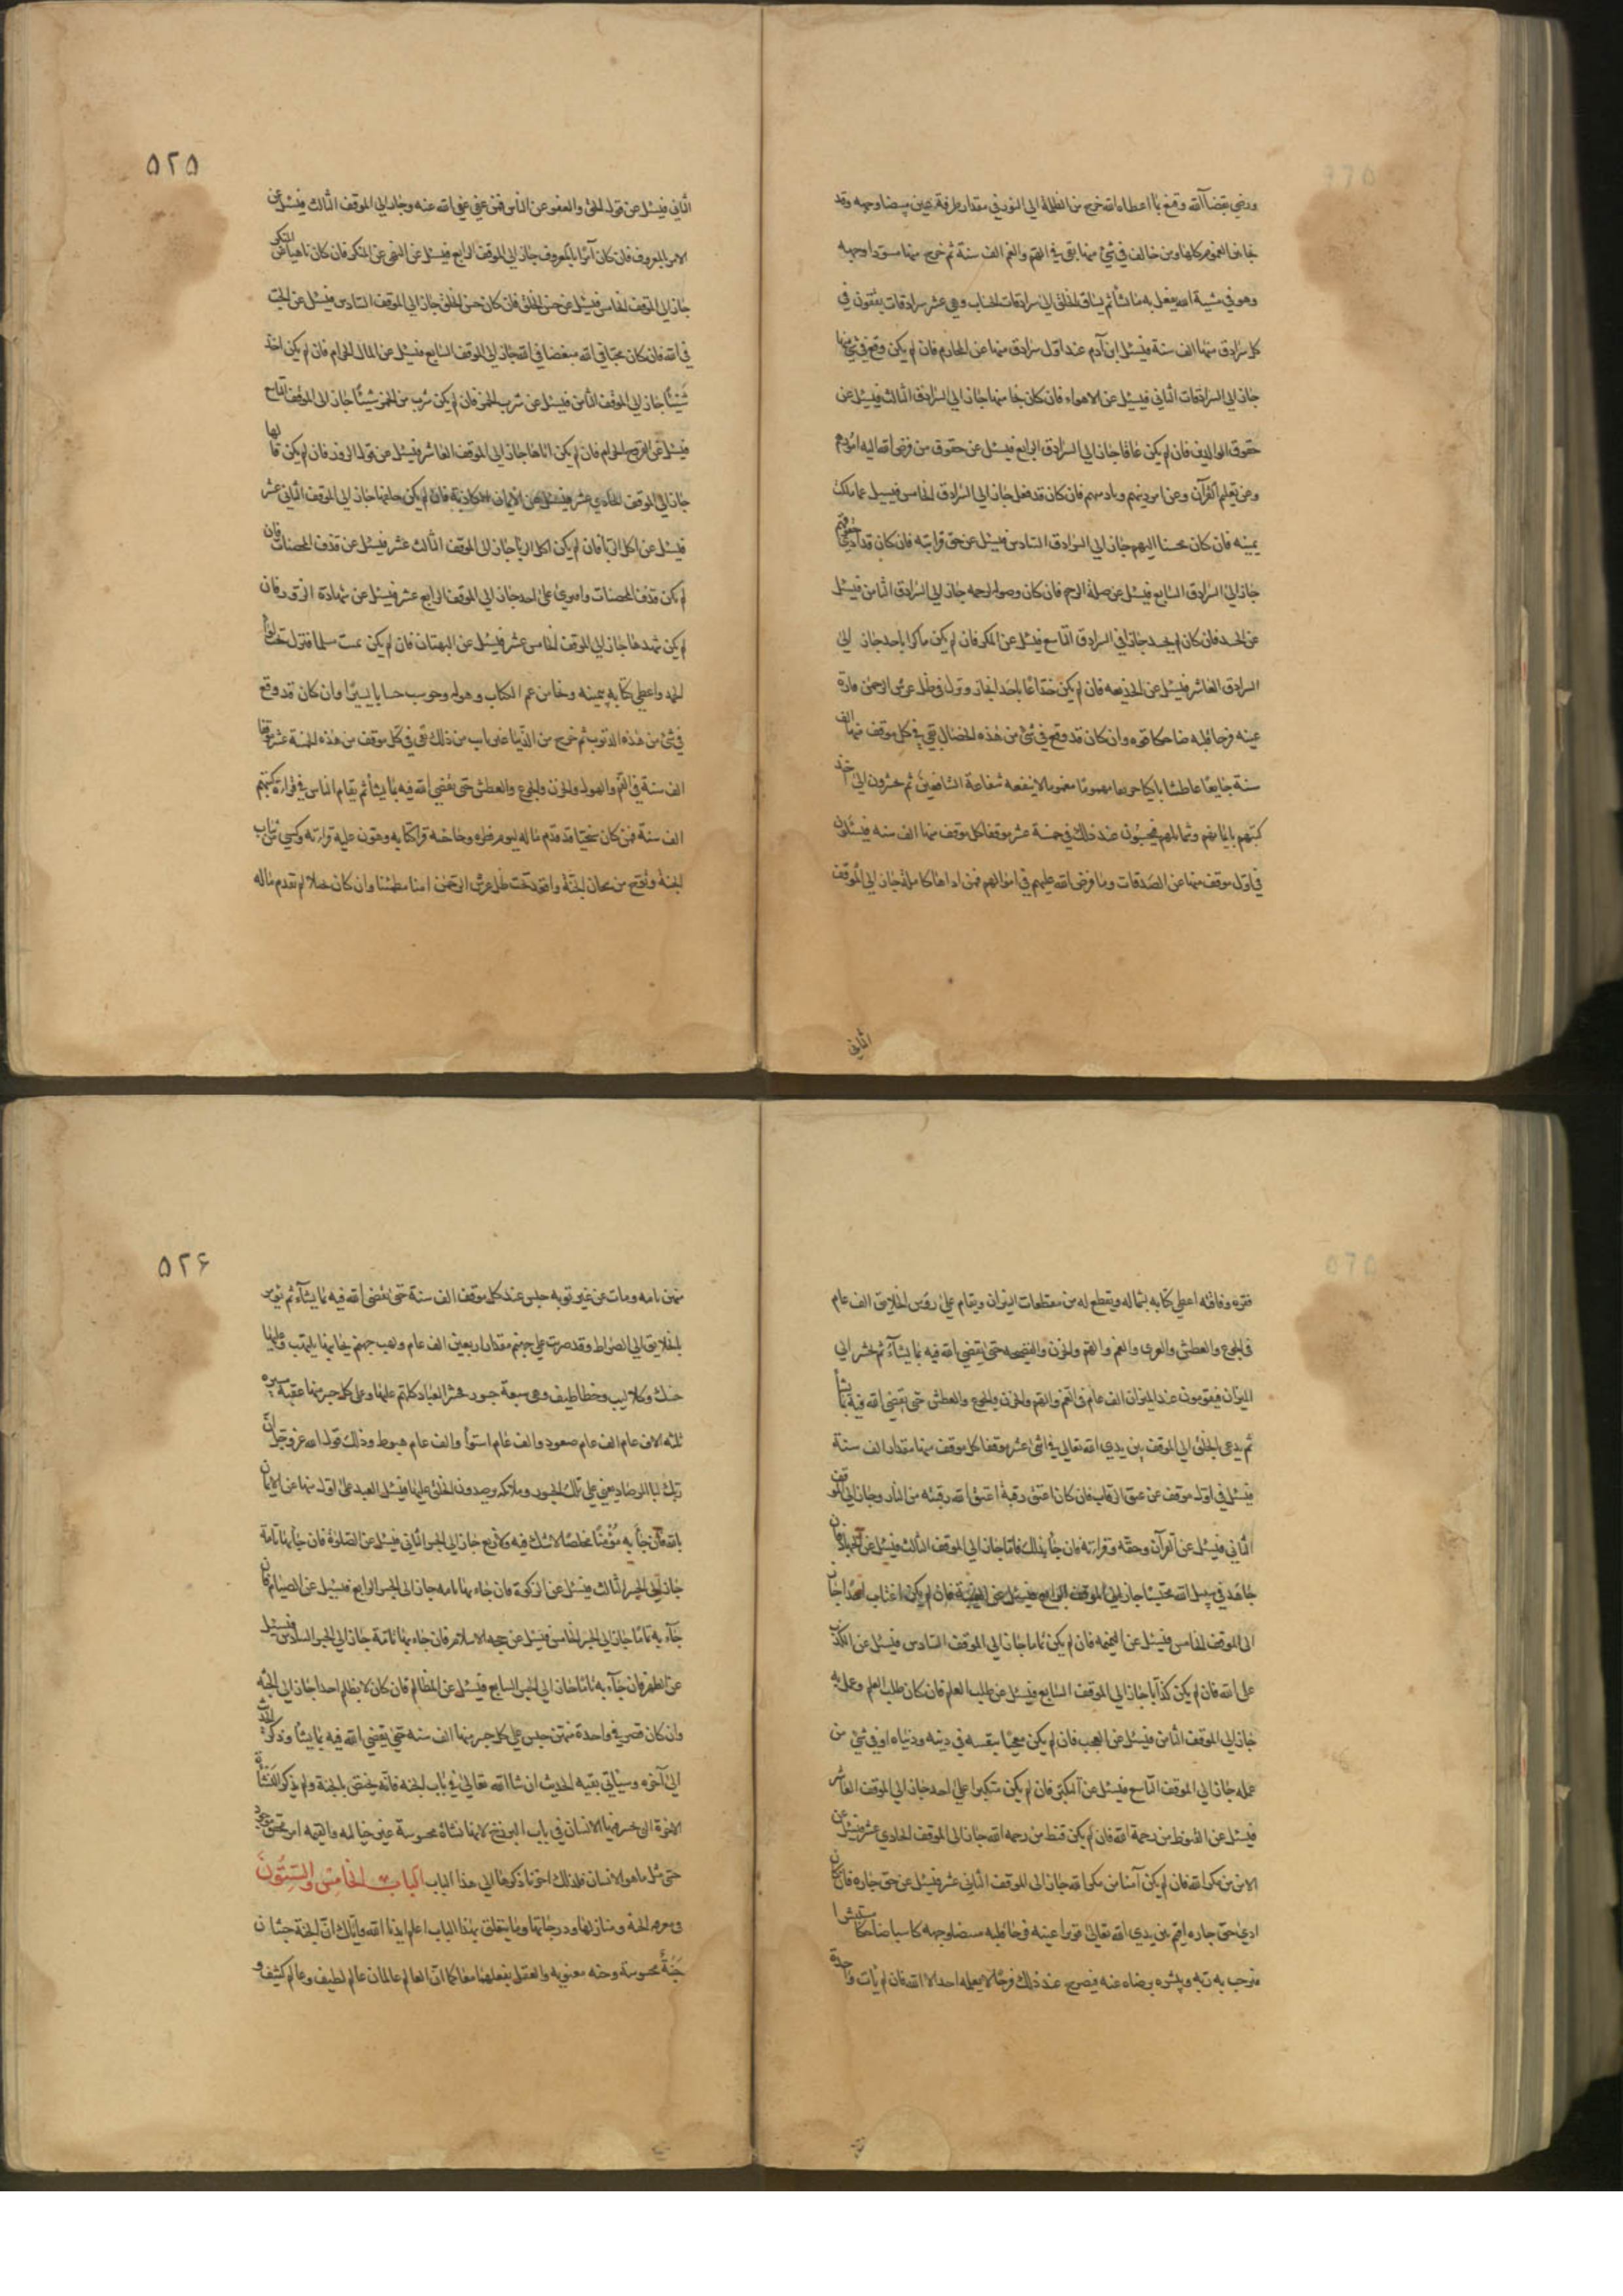 ورضي بقضاء الله وقنع بما اعطاه الله خرج من الظلمة الي النور في مقدار طرفة عين مبيضا وجهه وقد
نجا من الغموم كلها ومن خالف في شئ منها بقي في الهم والغم الف سنة ثم خرج منها مسودا وجهه
وهو في مشية الله يفعل به ما يشا ثم يساق الخلق الي سرادقات الحساب وهي عشر سرادقات يقفون في
كل سرادق منها الف سنة فيسئل ابن آدم عند اول سرادق منها عن المحارم فان لم يكن وقع في شئ منها
جاز الي السرادقات الثاني فيسئل عن الاهواء فان كان نجا منها جاز الي السرادق الثالث فيسئل عن
حقوق الوالدين فان لم يكن عاقا جاز الي السرادق الرابع فيسئل عن حقوق من فرض الله اليه امورهم
وعن تعليم القرآن وعن امر دينهم وتاديبهم فان كان قد فعل جاز الي السرادق الخامس فيسيل عما ملكت
يمينه فان كان محسنا اليهم جاز الي السرادق السادس فيسئل عن حق قرابته فان كان قد ادي حقوقهم
جاز الي السرادق السابع فيسئل عن صلة الرحم فان كان وصولا لرحمه جاز الي السرادق الثامن فيسئل
عن الحسد فان كان لم يحسد جاز الي السرادق التاسع فيسئل عن المكر فان لم يكن ماكرا باحد جاز الي
السرادق العاشر فيسئل عن الخديعه فان لم يكن خداعا باحد نجا ونزل في ظل عرش الرحمن قارة
عينه فرحا قلبه ضاحكا فوه وان كان قد وقع في شئ من هذه الخصال بقي في كل موقف منها الف
سنة جايعا عاطشا باكيا حزينا مهموما مغموما لا ينفعه شفاعة الشافعين ثم يحشرون الي اخذ
كتبهم بايمانهم وشمايلهم فيحبسون عند ذلك في خمسة عشر موقفا كل موقف منها الف سنه فيسئلون
في اول موقف منها عن الصدقات وما فرض الله عليهم في اموالهم فمن اداها كاملة جاز الي الموقف
الثاني
٥٢٥
الثاني فيسئل عن قول الحق والعفو عن الناس فمن عفي عفي الله عنه وجاز الي الموقف الثالث فيسئل عن
الامر بالمعروف فان كان آمرا بالمعروف جاز الي الموقف الرابع فيسئل عن النهي عن المنكر فان كان ناهيا عن المنكر
جاز الي الموقف الخامس فيسئل عن حسن الخلق فان كان حسن الخلق جاز الي الموقف السادس فيسئل عن الحب
في الله فان كان محبا في الله مبغضا في الله جاز الي الموقف السابع فيسئل عن المال الحرام فان لم يكن اخذ
شيئا جاز الي الموقف الثامن فيسئل عن شرب الخمر فان لم يكن شرب من الخمر شيئا جاز الي الموقف التاسع
فيسئل عن الفروج الحرام فان لم يكن اتاها جاز الي الموقف العاشر فيسئل عن قول الزور فان لم يكن قالها
جاز الي الموقف الحادي عشر فيسئل عن الايمان الكاذبة فان لم يكن حلفها جاز الي الموقف الثاني عشر
فيسئل عن اكل الربا فان لم يكن اكل الربا جاز الي الموقف الثالث عشر فيسئل عن قذف المحصنات فان
لم يكن قذف المحصنات وافتري علي احد جاز الي الموقف الرابع عشر فيسئل عن شهادة الزور فان
لم يكن شهدها جاز الي الموقف الخامس عشر فيسئل عن البهتان فان لم يكن بهت مسلما فنزل تحت لواء
الحمد واعطي كتابه بيمينه ونجا من غم الكتاب وهوله وحوسب حسابا يسيرا وان كان قد وقع
في شئ من هذه الذنوب ثم خرج من الدنيا غير تايب من ذلك بقي في كل موقف من هذه الخمسة عشر موقفا
الف سنة في الغم والهول والحزن والجوع والعطش حتي يقضي الله فيه بما يشأ ثم يقام الناس في قراءة كتبهم
الف سنة فمن كان سخيا قد قدم ماله ليوم فقره وحاجته قرا كتابه وهون عليه قراءته وكسي من ثياب
الجنة وتوج من تيجان الجنة واقعد تحت ظل عرش الرحمن امنا مطمئنا وان كان بخيلا لم يقدم ماله
فقره وفاقته اعطي كتابه بشماله ويقطع له من مقطعات النيران ويقام علي رؤس الخلايق الف عام
في الجوع والعطش والعري والغم والهم والحزن والفضيحه حتي يقضي الله فيه بما يشاء ثم يحشر الي
الميزان فيقومون عند الميزان الف عام في الغم والهم والحزن والجوع والعطش حتي يقضي الله فيه بما يشأ
ثم يدعي الخلق الي الموقف بين يدي الله تعالي في اثني عشر موقفا كل موقف منها مقدار الف سنة
فيسئل في اول موقف عن عتق الرقاب فان كان اعتق رقبة اعتق الله رقبته من النار وجاز الي الموقف
الثاني فيسئل عن القرآن وحقه وقراءته فان جأ بذلك تاما جاز الي الموقف الثالث فيسئل عن الجهاد فان
جاهد في سبيل الله محتسبا جاز الي الموقف الرابع فيسئل عن الغيبة فان لم يكن اغتاب احدا جاز
الي الموقف الخامس فيسئل عن النميمه فان لم يكن نماما جاز الي الموقف السادس فيسئل عن الكذب
علي الله فان لم يكن كذابا جاز الي الموقف السابع فيسئل عن طلب العلم فان كان طلب العلم وعمل به
جاز الي الموقف الثامن فيسئل عن العجب فان لم يكن معجبا بنفسه في دينه ودنياه او في شئ من
عمله جاز الي الموقف التاسع فيسئل عن التكبر فان لم يكن متكبرا علي احد جاز الي الموقف العاشر
فيسئل عن القنوط من رحمة الله فان لم يكن قنط من رحمه الله جاز الي الموقف الحادي عشر فيسئل عن
الامن من مكر الله فان لم يكن آمنا من مكر الله جاز الي الموقف الثاني عشر فيسئل عن حق جاره فان كان
ادي حق جاره اقيم بين يدي الله تعالي قريرا عينه فرحا قلبه مبيضا وجهه كاسيا ضاحكا مستبشرا
فيرحب به ربه ويبشره برضاه عنه فيفرح عند ذلك فرحا لا يعلمه احد الا الله فان لم يات واحدة
٥٢۶
منهن تامه ومات عن غير توبه حبس عند كل موقف الف سنة حتي يقضي الله فيه بما يشاء ثم يؤمر
بالخلايق الي الصراط وقد ضربت علي جهنم مقدار اربعين الف عام ولهب جهنم بجانبها يلتهب وعليها
حسك وكلاليب وخطاطيف وهي سبعة جسور يحشر العباد كلهم عليها وعلي كل جسر منها عقبة مسيره
ثلثه الاف عام الف عام صعود والف عام استوأ والف عام هبوط وذلك قول الله عز وجل ان
ربك لبا لمرصاد يعني علي تلك الجسور وملائكه يرصدون الخلق عليها فيسئل العبد علي اول منها عن الايمان
بالله فان جأ به مؤمنا مخلصا لا شك فيه ولا زيغ جاز الي الجسر الثاني فيسئل عن الصلوة فان جأ بها تامة
جاز الي الجسر الثالث فيسئل عن الزكوة فان جاء بها تامه جاز الي الجسر الرابع فيسئل عن الصيام فان
جاء به تاما جاز الي الجسر الخامس فيسئل عن حجه الاسلام فان جاء بها تامة جاز الي الجسر السادس فيسئل
عن الطهر فان جآء به تاما جاز الي الجسر السابع فيسئل عن المظالم فان كان لا يظلم احدا جاز الي الجنه
وان كان قصر في واحدة منهن حبس علي كل جسر منها الف سنه حتي يقضي الله فيه بما يشا وذكر الحديث
الي آخره وسياتي بقيه الحديث ان شا الله تعالي في باب الجنه فانه يختص بالجنة ولم نذكر النشأة
الاخرة التي يحشر فيها الانسان في باب البرزخ لانها نشاة محسوسة غير خياليه والقيمه امر محقق موجود
حسي مثل ما هو الانسان فلذلك اخرنا ذكرها الي هذا الباب الباب الخامس والستون
في معرفه الجنة ومنازلها ودرجاتها وما يتعلق بهذا الباب اعلم ايدنا الله واياك ان الجنة جنتان
جنة محسوسة وجنه معنويه والعقل يعقلهما معا كما ان العالم عالمان عالم لطيف وعالم كثيف و